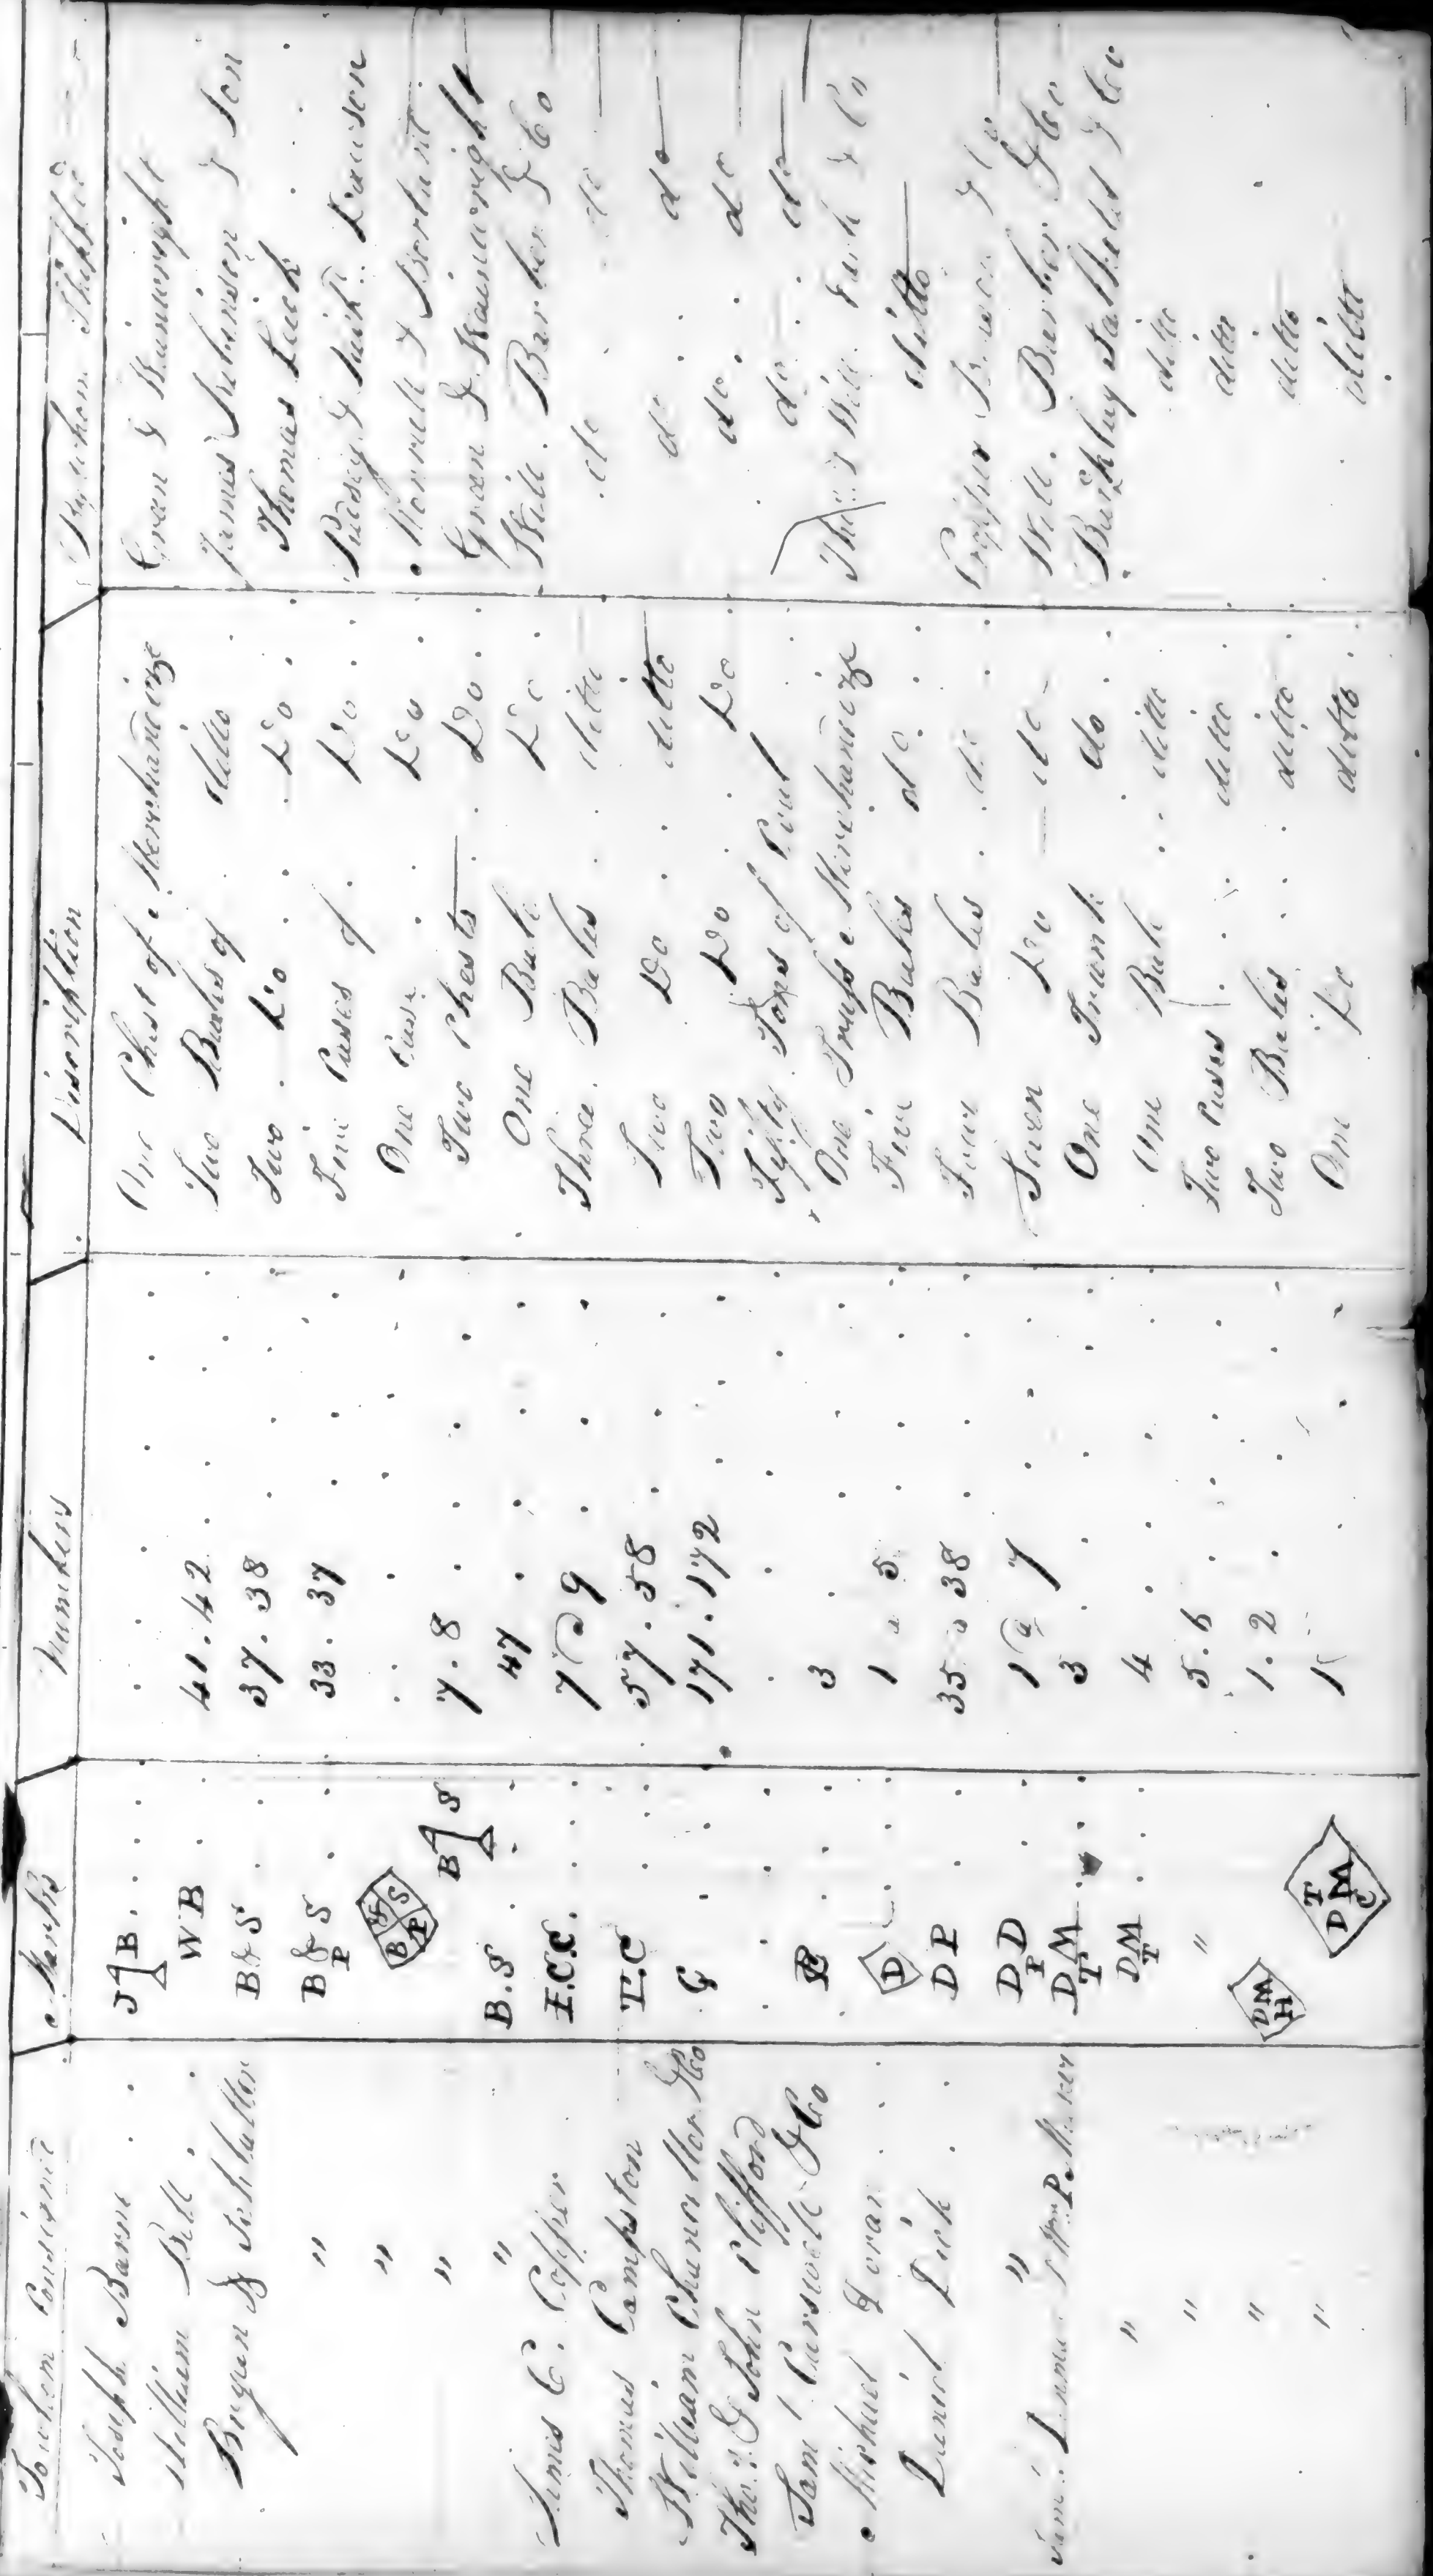 To whom Consigned Marks Numbers Description By whom Shipped
Joseph Barn J B One Chest of Merchandize &
William Bell WB 41.42 Two Bales of ditto James Johnson & Son
Bryan & Schlatter B&S 37.38 Two Do Do Thomas
" B&S P 33.37 Five Cases of Do &
" B & S P One Case Do &
" B S 7.8 Two Chests Do Green & Wainwright
" B.S 47 One Bale Do Will. Barber & Co
James C. Copper I.C.C. 7 @ 9 Three Bales ditto do do
Thomas Compston T.C 57.58 Two Do ditto do do
William Chancellor & Co G 171.172 Two Do Do do do
Tho.s & John Clifford Fifty Tons of Coal do do
Sam.l Carswell & Co 3 One Truss Merchandize Tho.s & Will. & Co
Michael Doran D 1 a 5 Five Bales do ditto
Daniel Dick DP 35 a 38 Four Bales do
" DD P 1 @ 7 Seven Do do Will. Barber & Co
DM T 3 One Trunk do & Co
" DM T 4 One Bale ditto ditto
" " 5.6 Two Cases ditto ditto
" DM H 1.2 Two Bales ditto ditto
" T DM C 1 One Do ditto ditto